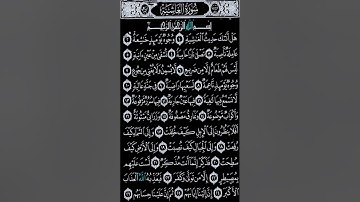 سُورَةُ الغَاشِيَةِ
بِسْمِ ٱللَّهِ ٱلرَّحْمَٰنِ ٱلرَّحِيمِ
هَلْ أَتَىٰكَ حَدِيثُ ٱلْغَٰشِيَةِ ١ وُجُوهٌ يَوْمَئِذٍ خَٰشِعَةٌ ٢
عَامِلَةٌ نَّاصِبَةٌ ٣ تَصْلَىٰ نَارًا حَامِيَةً ٤ تُسْقَىٰ مِنْ عَيْنٍ ءَانِيَةٍ ٥
لَّيْسَ لَهُمْ طَعَامٌ إِلَّا مِن ضَرِيعٍ ٦ لَّا يُسْمِنُ وَلَا يُغْنِي مِن جُوعٍ ٧
وُجُوهٌ يَوْمَئِذٍ نَّاعِمَةٌ ٨ لِّسَعْيِهَا رَاضِيَةٌ ٩ فِي جَنَّةٍ عَالِيَةٍ ١٠
لَّا تَسْمَعُ فِيهَا لَٰغِيَةً ١١ فِيهَا عَيْنٌ جَارِيَةٌ ١٢ فِيهَا سُرُرٌ مَّرْفُوعَةٌ ١٣
وَأَكْوَابٌ مَّوْضُوعَةٌ ١٤ وَنَمَارِقُ مَصْفُوفَةٌ ١٥ وَزَرَابِيُّ مَبْثُوثَةٌ ١٦
أَفَلَا يَنظُرُونَ إِلَى ٱلْإِبِلِ كَيْفَ خُلِقَتْ ١٧ وَإِلَى ٱلسَّمَآءِ كَيْفَ
رُفِعَتْ ١٨ وَإِلَى ٱلْجِبَالِ كَيْفَ نُصِبَتْ ١٩ وَإِلَى ٱلْأَرْضِ كَيْفَ
سُطِحَتْ ٢٠ فَذَكِّرْ إِنَّمَآ أَنتَ مُذَكِّرٌ ٢١ لَّسْتَ عَلَيْهِم
بِمُصَيْطِرٍ ٢٢ إِلَّا مَن تَوَلَّىٰ وَكَفَرَ ٢٣ فَيُعَذِّبُهُ ٱللَّهُ ٱلْعَذَابَ
ٱلْأَكْبَرَ ٢٤ إِنَّ إِلَيْنَآ إِيَابَهُمْ ٢٥ ثُمَّ إِنَّ عَلَيْنَا حِسَابَهُم ٢٦